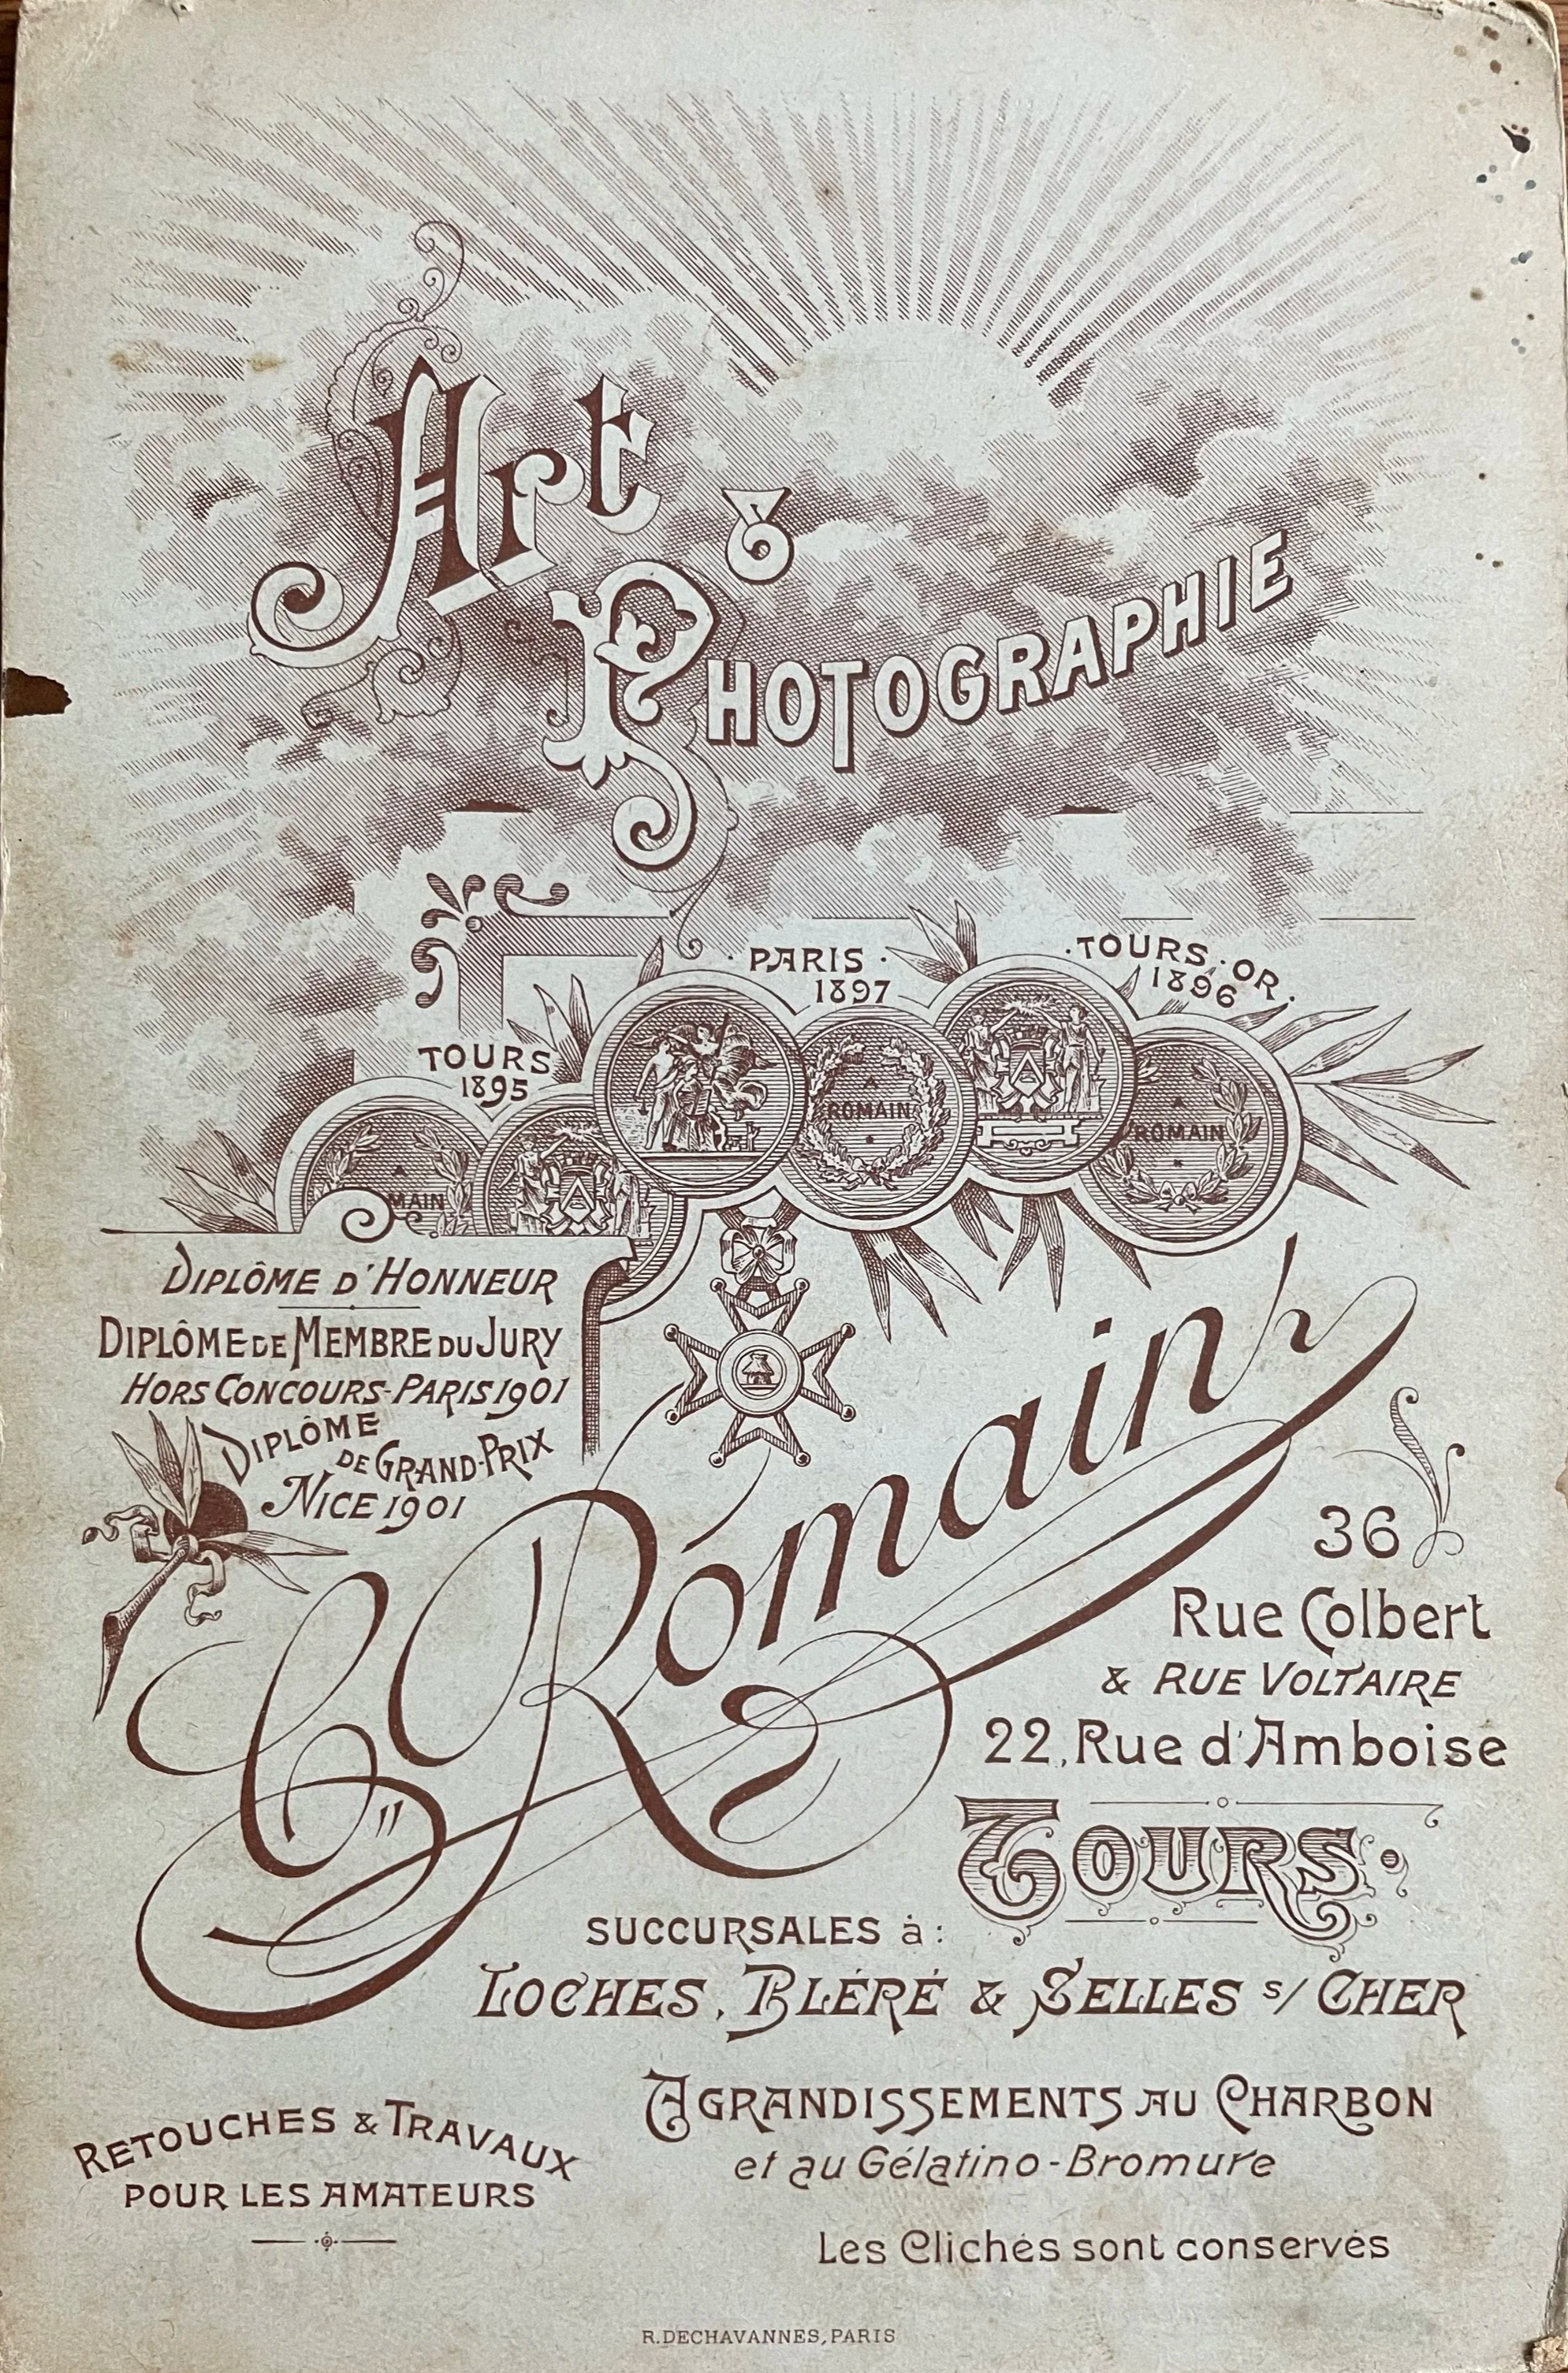 Art
&
PHOTOGRAPHIE
PARIS
1897
TOURS. OR.
1896
TOURS
1895
A
ROMAIN
A
ROMAIN
A
MAIN
DIPLÔME D'HONNEUR
DIPLÔME DE MEMBRE DU JURY
HORS CONCOURS-PARIS 1901
DIPLÔME
DE GRAND-PRIX
NICE 1901
C. Romain
36
Rue Colbert
& RUE VOLTAIRE
22, Rue d'Amboise
TOURS.
SUCCURSALES à:
LOCHES, BLÉRÉ & SELLES s/ CHER
RETOUCHES & TRAVAUX
POUR LES AMATEURS
AGRANDISSEMENTS AU CHARBON
et au Gélatino-Bromure
Les Clichés sont conservés
R.DECHAVANNES, PARIS